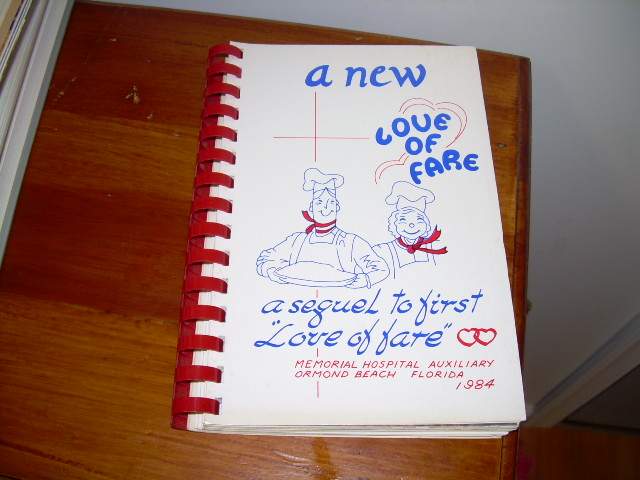 a new
LOVE
OF
FARE
a sequel to first
"Love of fare"
MEMORIAL HOSPITAL AUXILIARY
ORMOND BEACH FLORIDA
1984